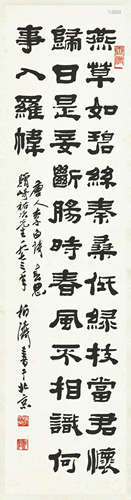 燕草如碧絲秦桑低綠枝當君懷
歸日是妾斷腸時春風不相識何
事入羅幃
唐人李白詩春思
柏濤書于北京